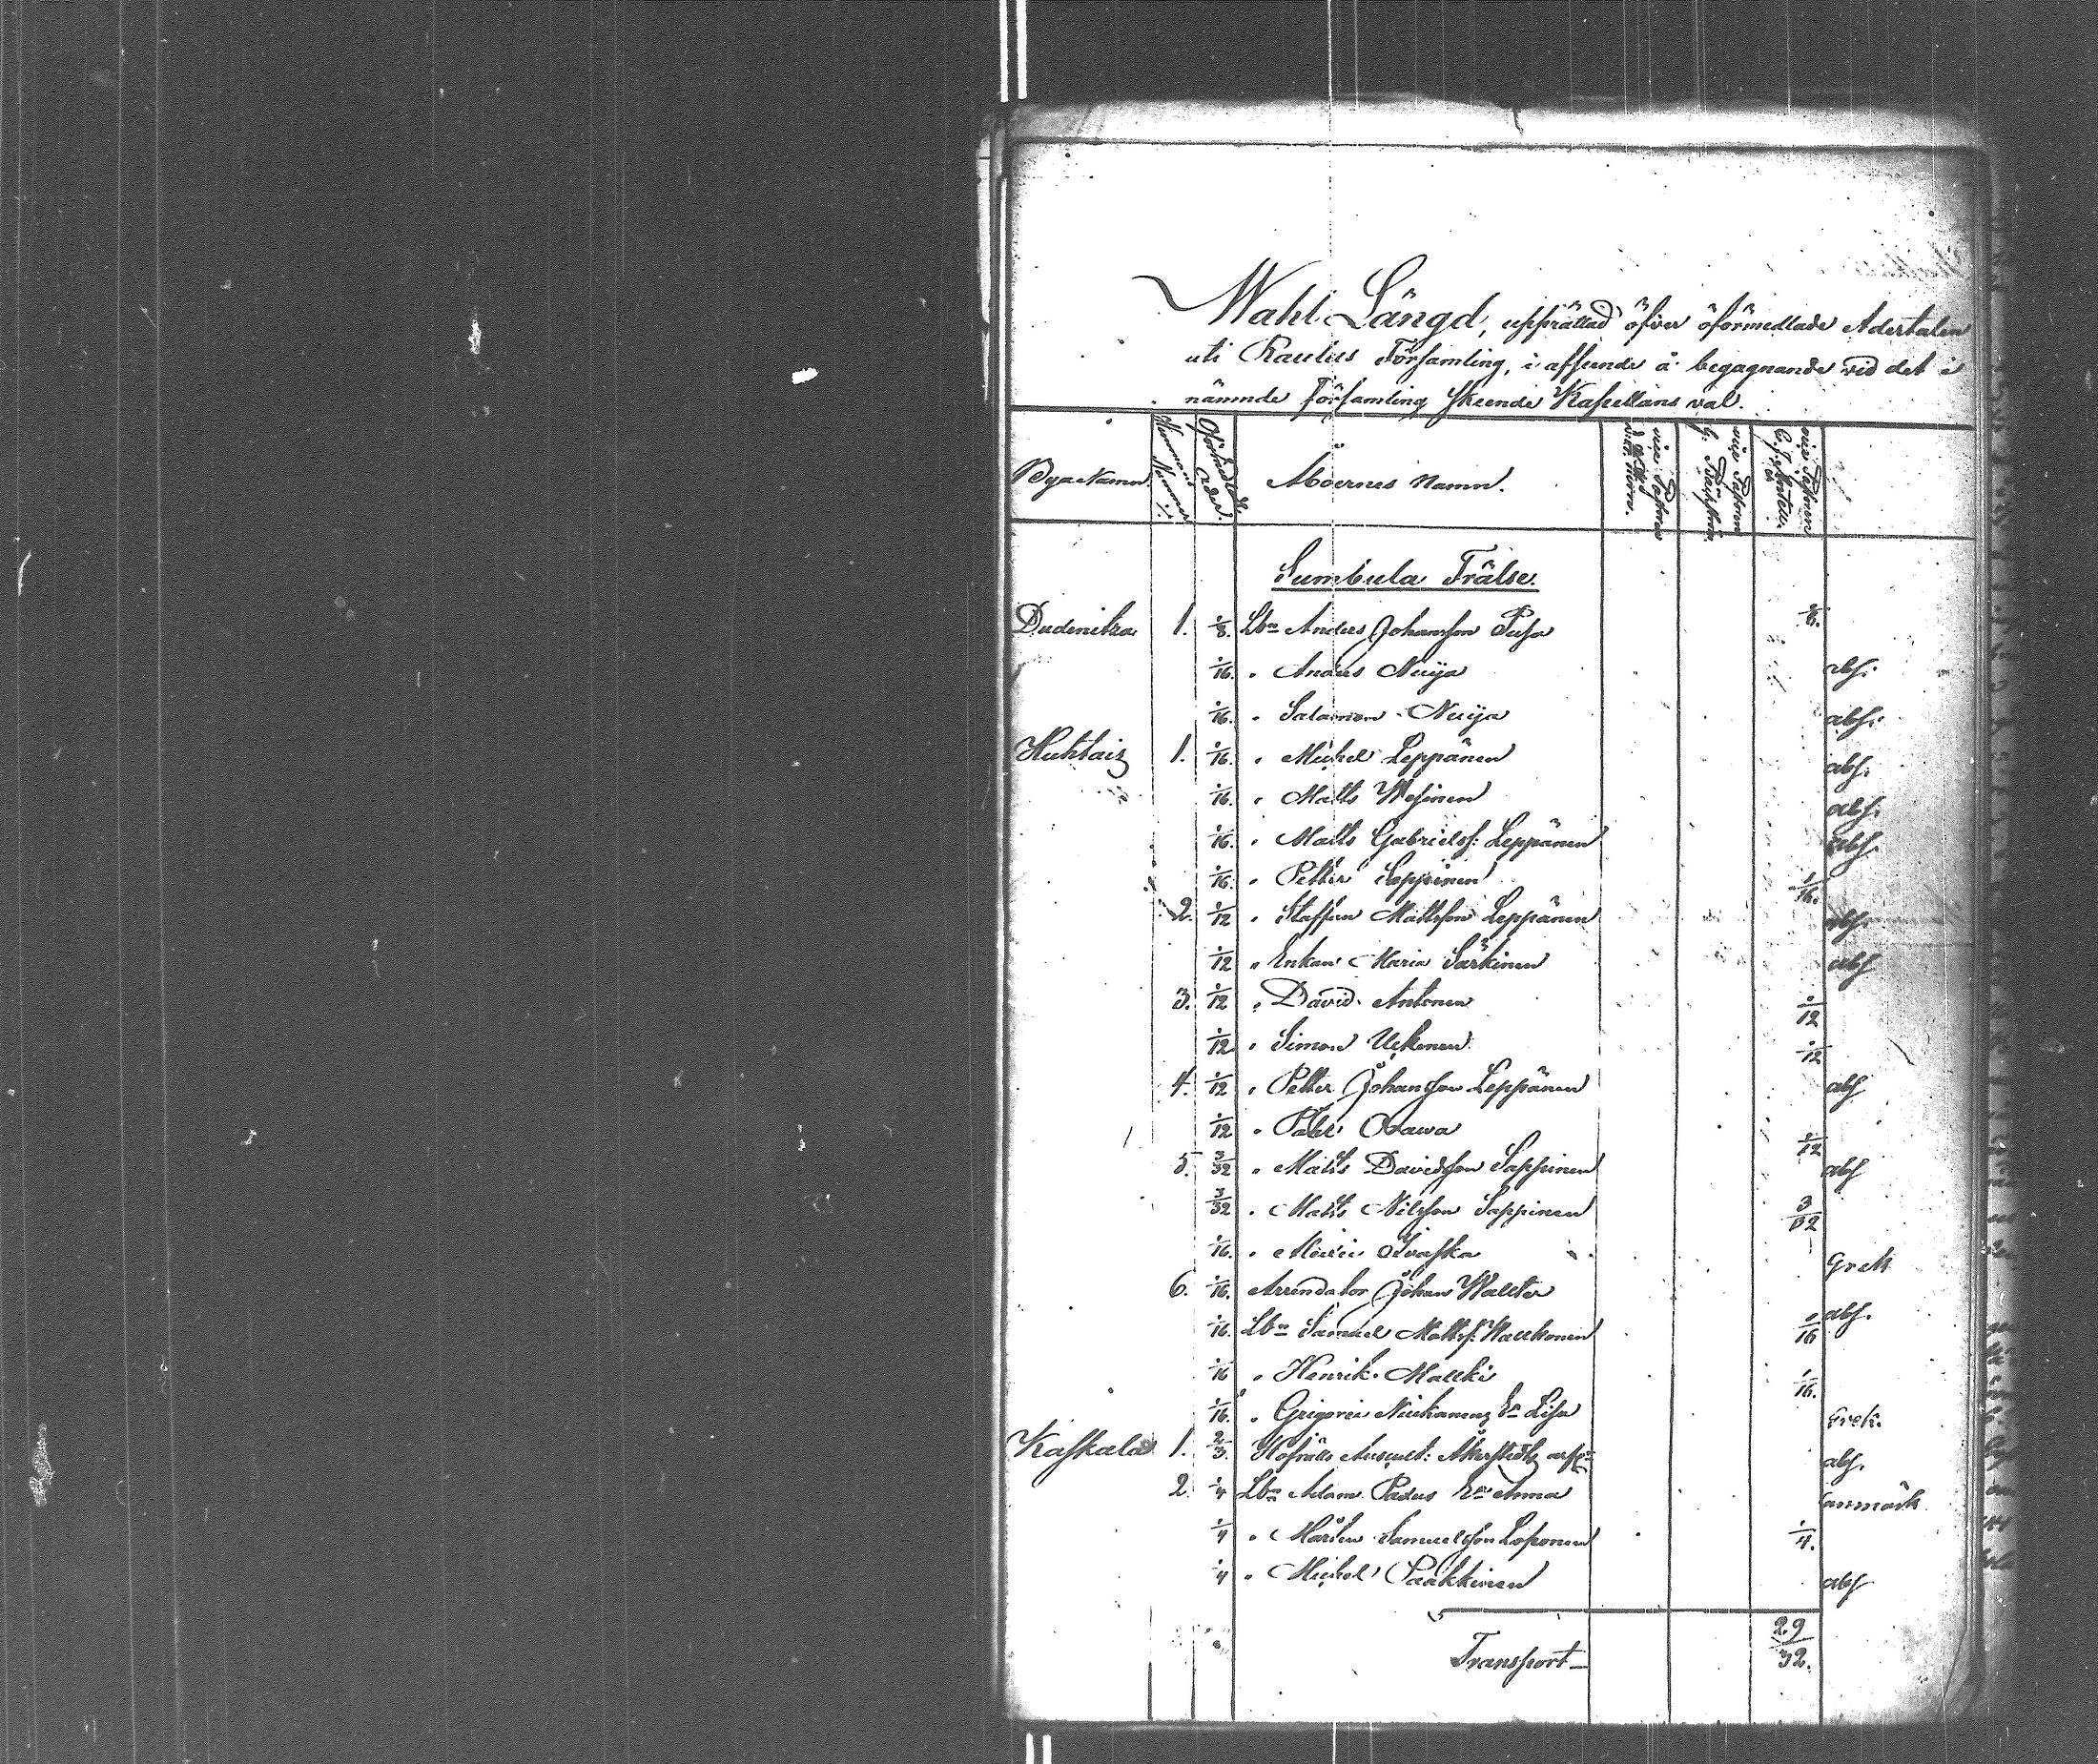 Wahl Längd, upprättad öfver oförmedlade Adertalen
uti Rautus Församling, i afseende å begagnande vid det i
nämnde församling skeende Kapellans val.
Bya Namn. Hemmans Nummer Oförmedl. Ader. Åboernes Namn. vice Pastorn vice Pastorn vice Pastorn
Sumbula Frälse.
Dudinitza 1. 1/8. Lbn Anders Johansson Pusa 1/8.
1/16. " Anders Nuija abs.
1/16. " Salamon Nuija abs.
Huhtais 1. 1/16. " Michel Leppänen abs.
1/16. " Matts Wesinen abs.
1/16. " Matts Gabrielss: Leppänen abs.
1/16. " Petter Sappinen 1/16.
2. 1/12 " Staffan Mattsson Leppänen abs.
1/12 " Enkan Maria Särkinen abs
3. 1/12 " David Antonen 1/12
1/12 " Simon Ukkonen 1/12
4. 1/12 " Petter Johansson Leppänen abs
1/12 " Påhl Orawa 1/12
5. 3/32 " Matts Davidsson Sappinen abs
3/32 " Matts Nilsson Sappinen 3/32
1/16. " Ivaska Grek
6. 1/16. Arrendator Johan Walter abs.
1/16. Lbn Samuel Mattss: Haukonen 1/16
1/16 " Henrik Mallki 1/16.
1/16. " Grigorei Niukanens En Lisa Grek.
Kaskala 1. 2/3. Hofrätts Auscult: Åkerstedts abs.
2. 1/4 Lbn Adam Padus En Anna anmärk
1/4 " Mårten Samuelsson Loponen 1/4.
1/4 " Michel Paakkinen abs
Transport 29/32.